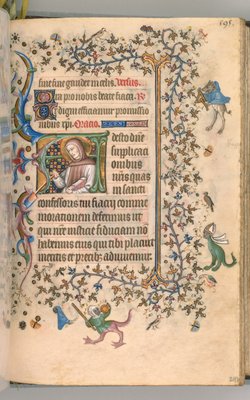 sine fine gaudet in celis. Versus.
Ora pro nobis beate fiacri. R
Ut digni efficiamur promissio
nibus xpi. Oratio.
Adesto dñe
supplicati
onibus
nr̃is quas
in sancti
confessoris tui fiacrij comme
moratione deferimus ut
qui nr̃e iusticie fiduciam nõ
habemus eius qui tibi placuit
meritis et precibꝫ adiuvemur.